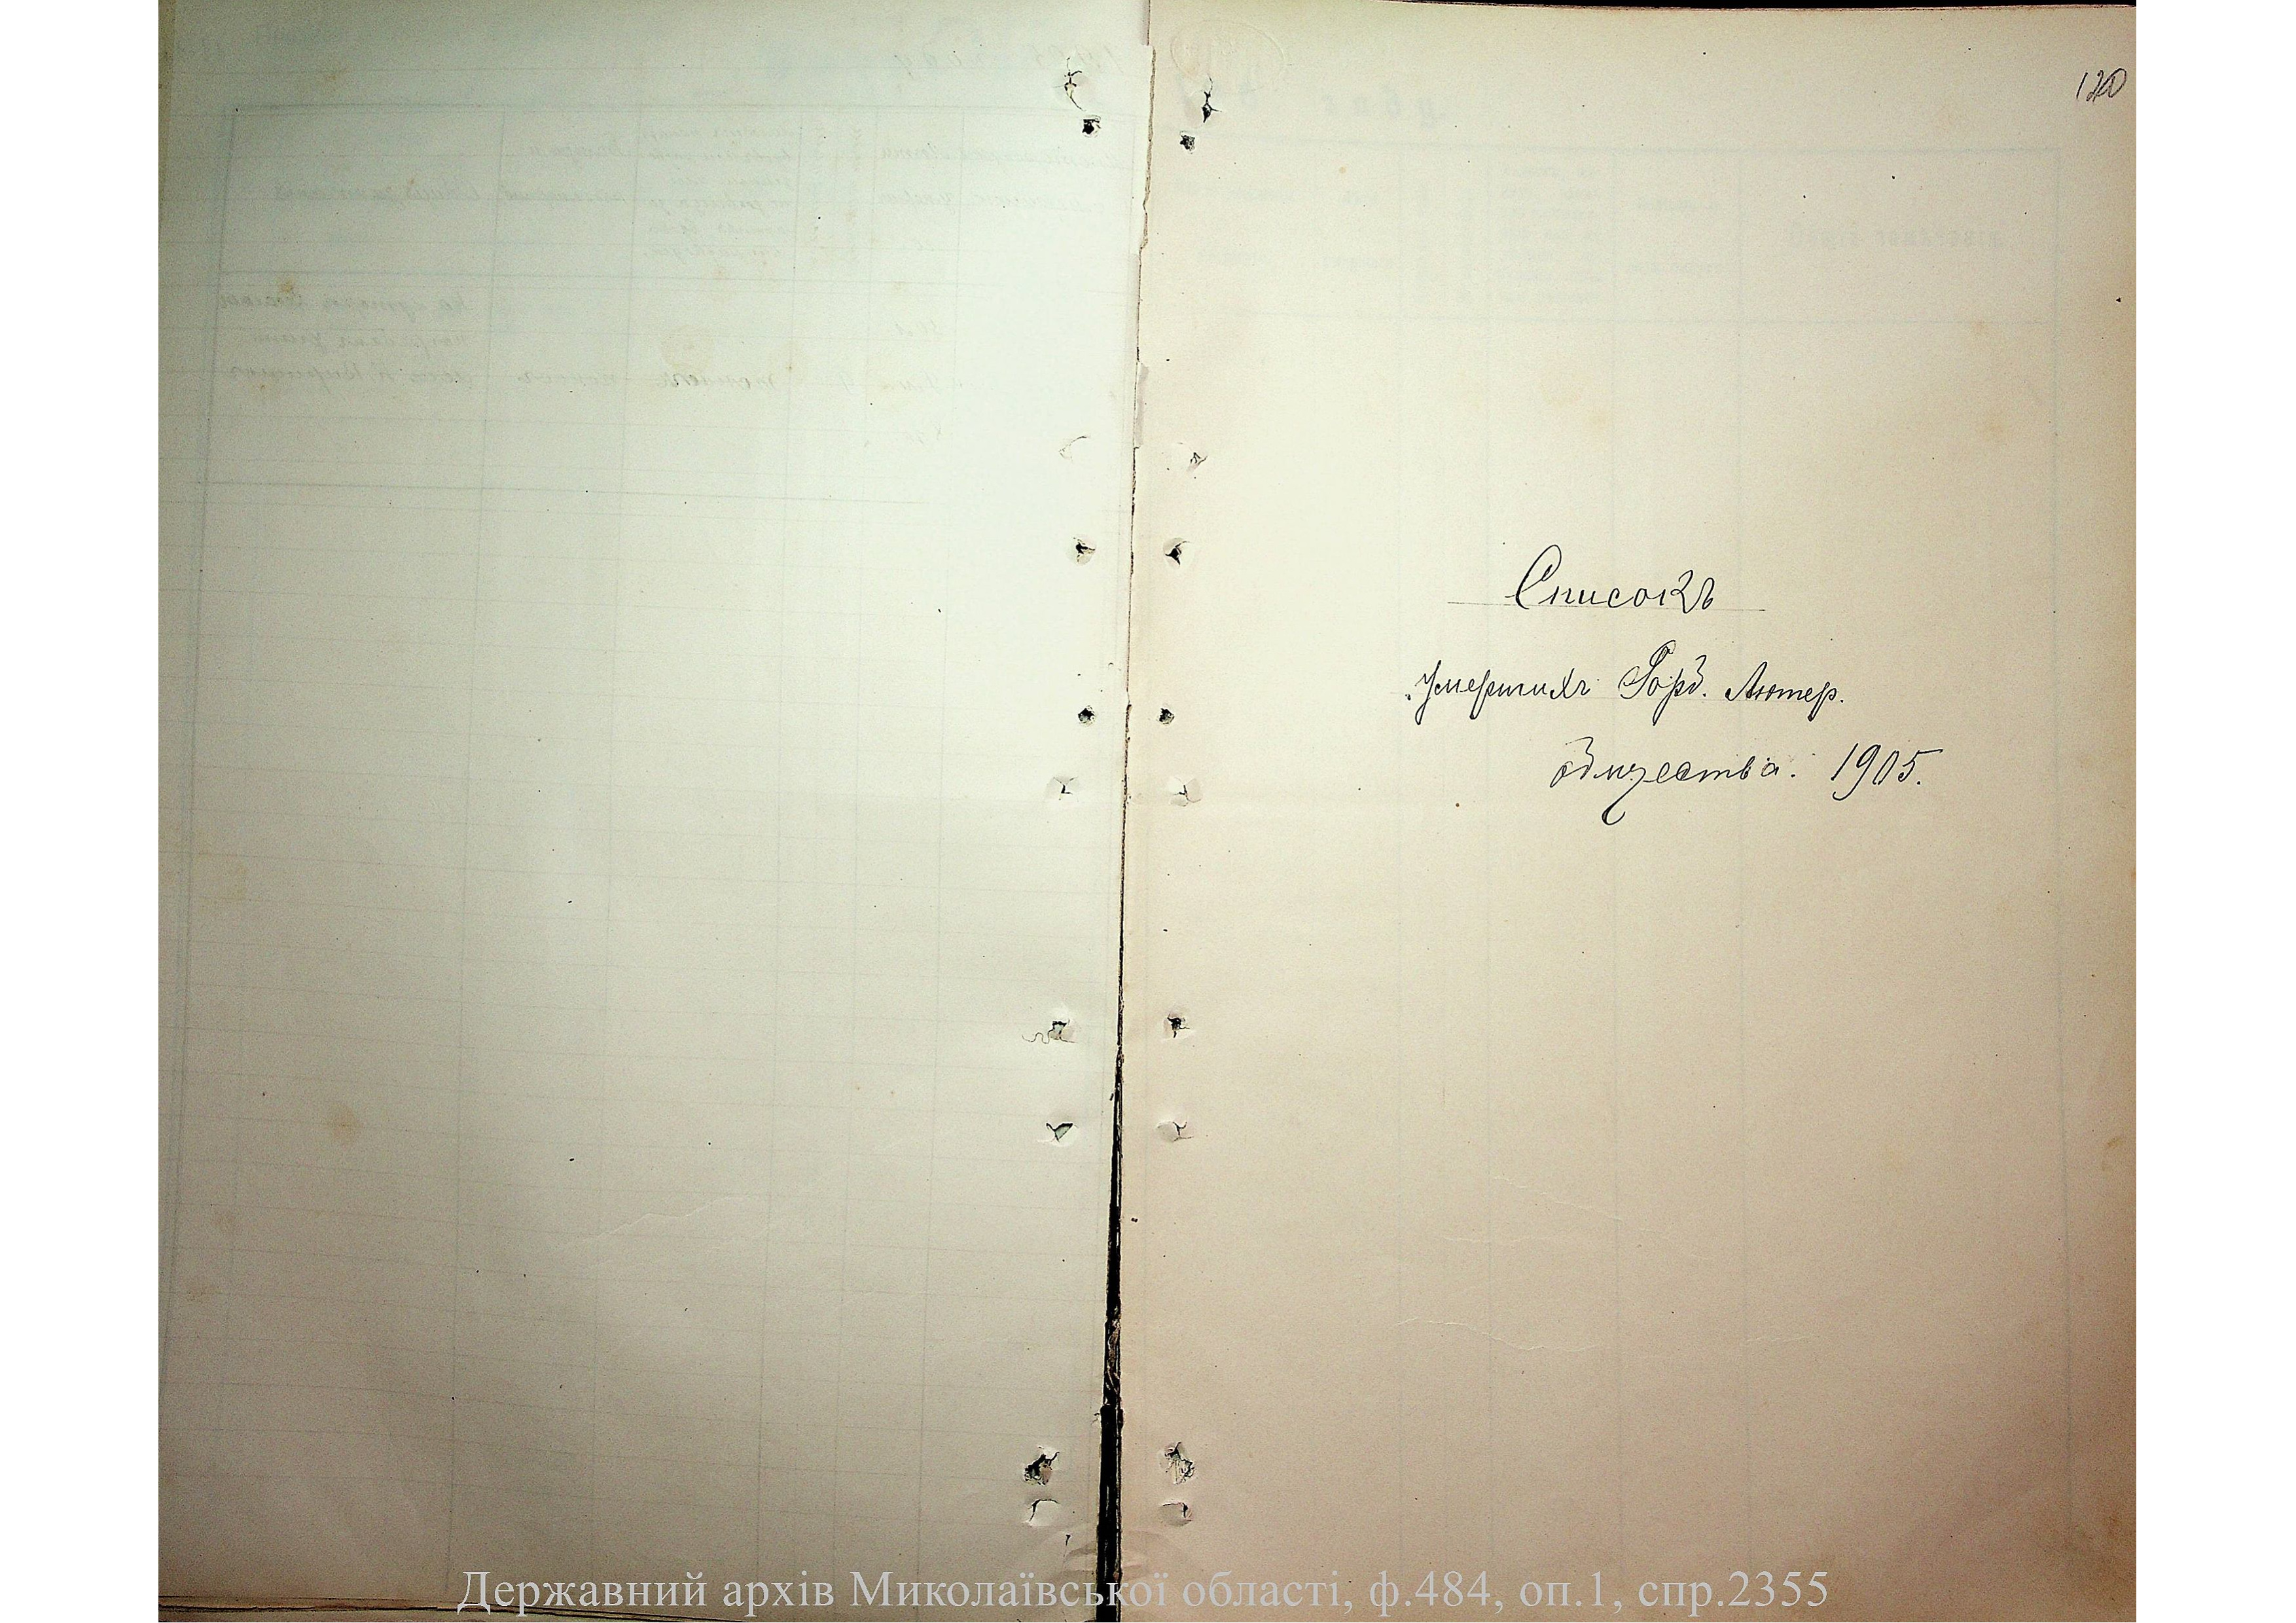 120
Списокъ
умершихъ Горд. Лютер.
общества. 1905.
Державний архів Миколаївської області, ф.484, оп.1, спр.2355